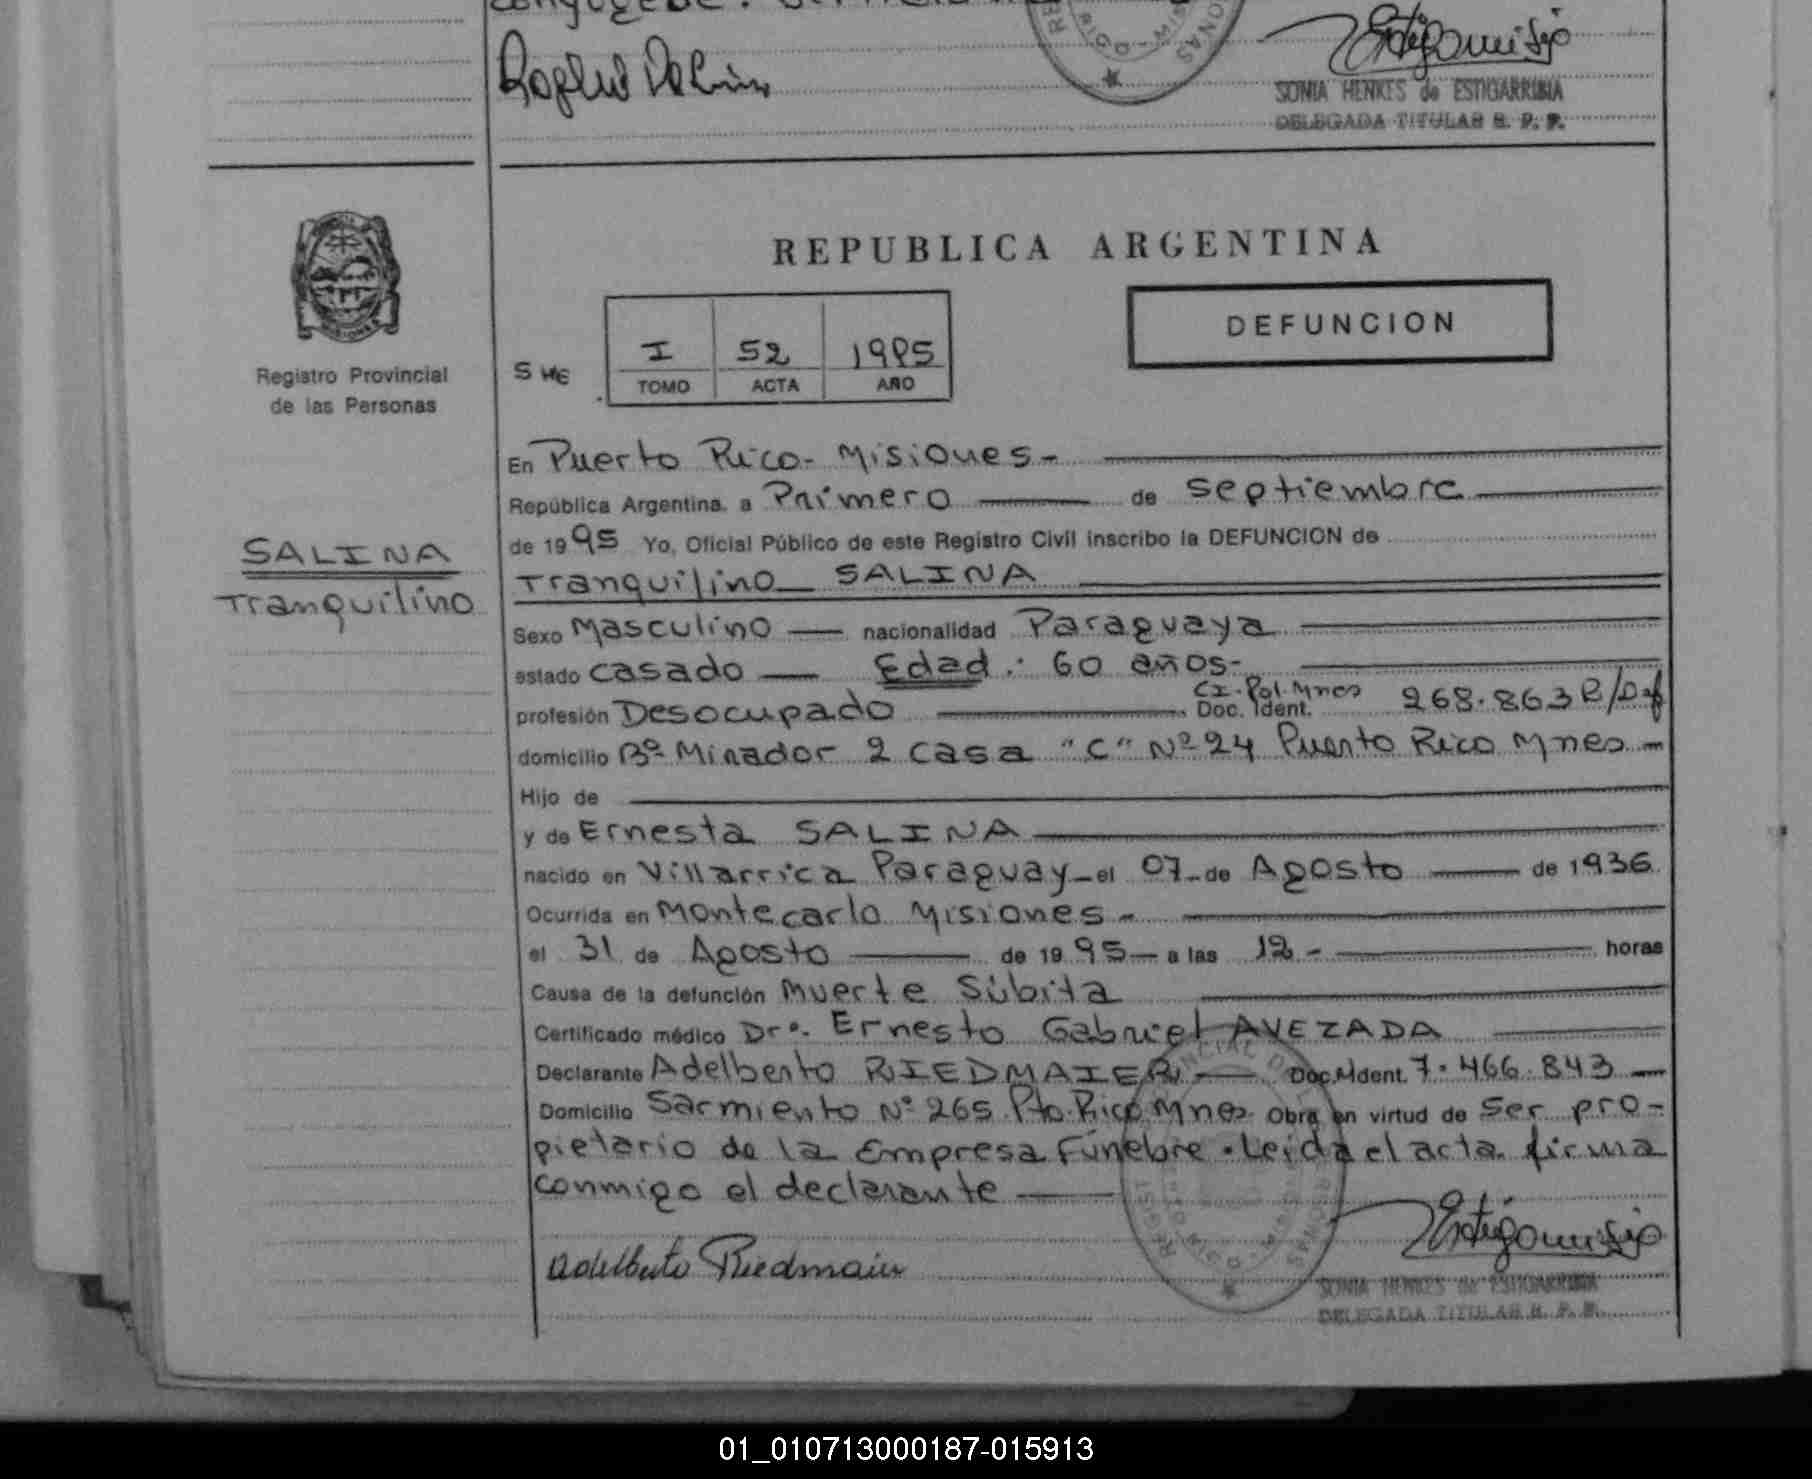 SONIA HENKES de ESTIGARRIBIA
DELEGADA TITULAR R. P. P.
REPUBLICA ARGENTINA
DEFUNCION
S HE
I 52 1995
TOMO ACTA AÑO
MISIONES
Registro Provincial
de las Personas
SALINA
Tranquilino
En Puerto Rico- Misiones-
República Argentina, a Primero de septiembre
de 1995 Yo, Oficial Público de este Registro Civil inscribo la DEFUNCION de
Tranquilino SALINA
Sexo Masculino nacionalidad Paraguaya
estado casado Edad: 60 años-
profesión Desocupado CI. Pol. Mnes Doc. Ident. 268.863 R/Def
domicilio Bº Mirador 2 casa "C" Nº 24 Puerto Rico Mnes
Hijo de
y de Ernesta SALINA
nacido en Villarrica Paraguay el 07 de Agosto de 1936
Ocurrida en Montecarlo Misiones-
el 31 de Agosto de 1995 a las 12- horas
Causa de la defunción Muerte Súbita
Certificado médico Dr. Ernesto Gabriel AVEZADA
Declarante Adelberto RIEDMAIER Doc. Ident. 7.466.843
Domicilio Sarmiento Nº 265 Pto. Rico Mnes Obra en virtud de ser pro-
pietario de la Empresa Fúnebre. Leída el acta firma
conmigo el declarante
Adelberto Riedmaier
SONIA HENKES de ESTIGARRIBIA
DELEGADA TITULAR R. P. P.
01_010713000187-015913